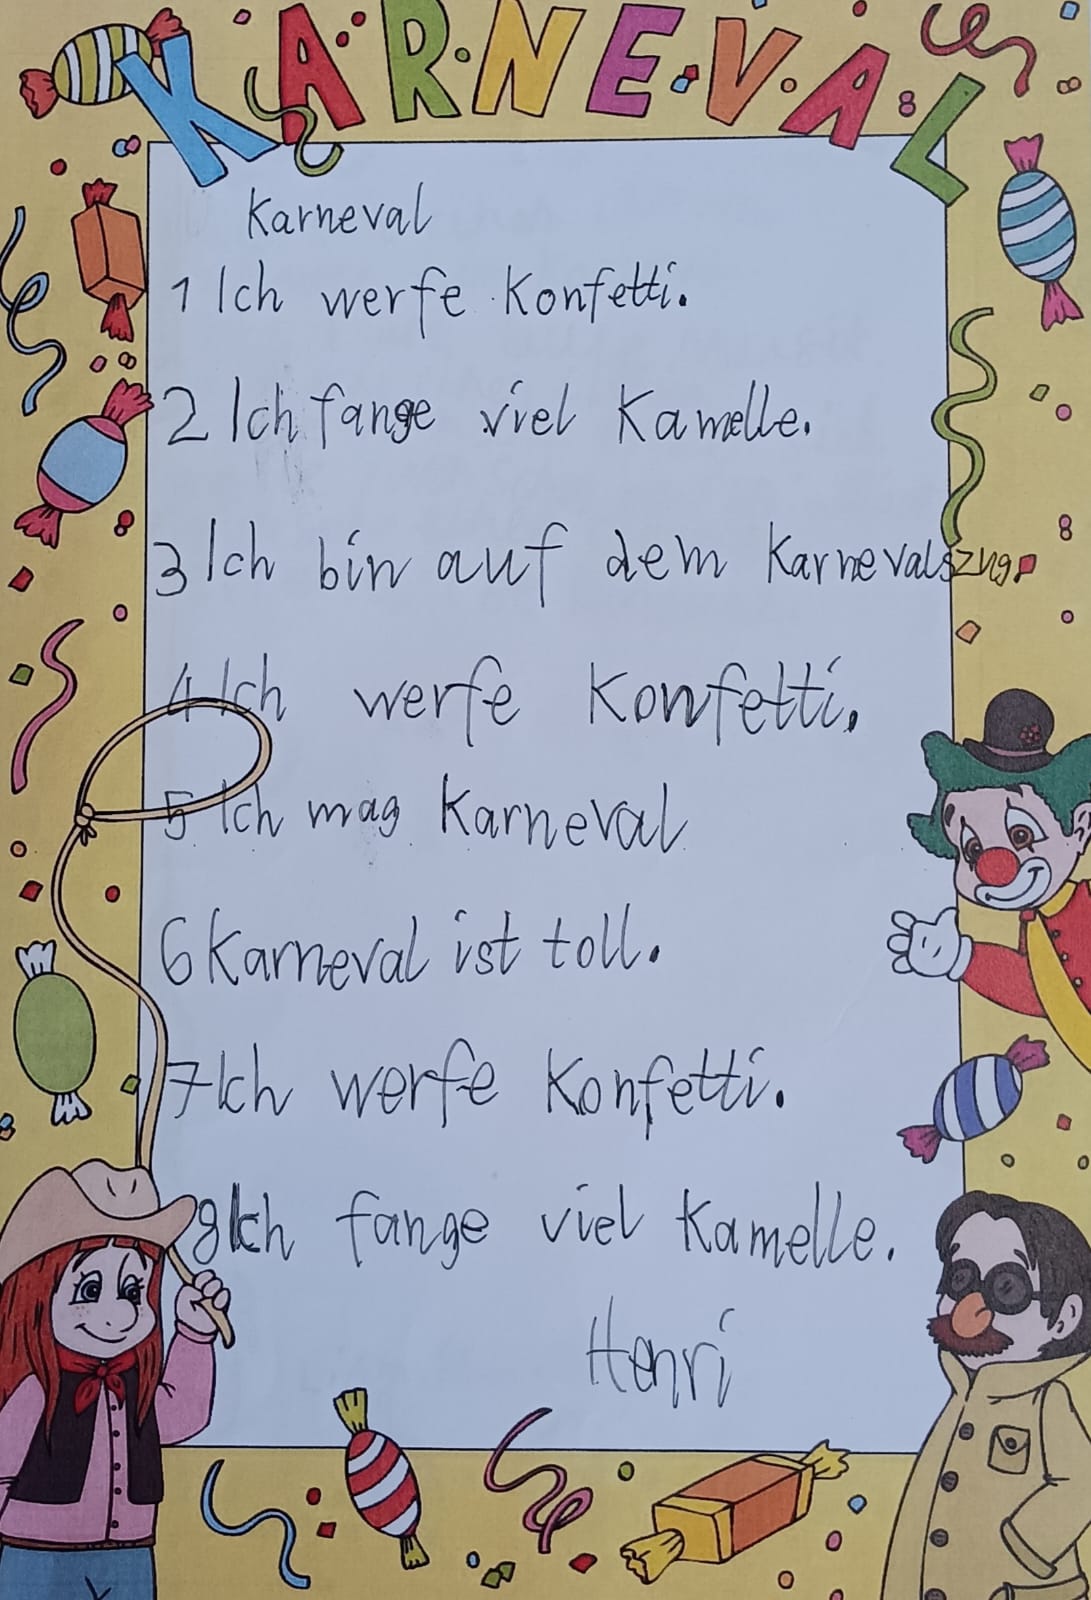 KARNEVAL
Karneval
1 Ich werfe Konfetti.
2 Ich fange viel Kamelle.
3 Ich bin auf dem Karnevalszug.
4 Ich werfe Konfetti.
5 Ich mag Karneval
6 Karneval ist toll.
7 Ich werfe Konfetti.
8 Ich fange viel Kamelle.
Henri